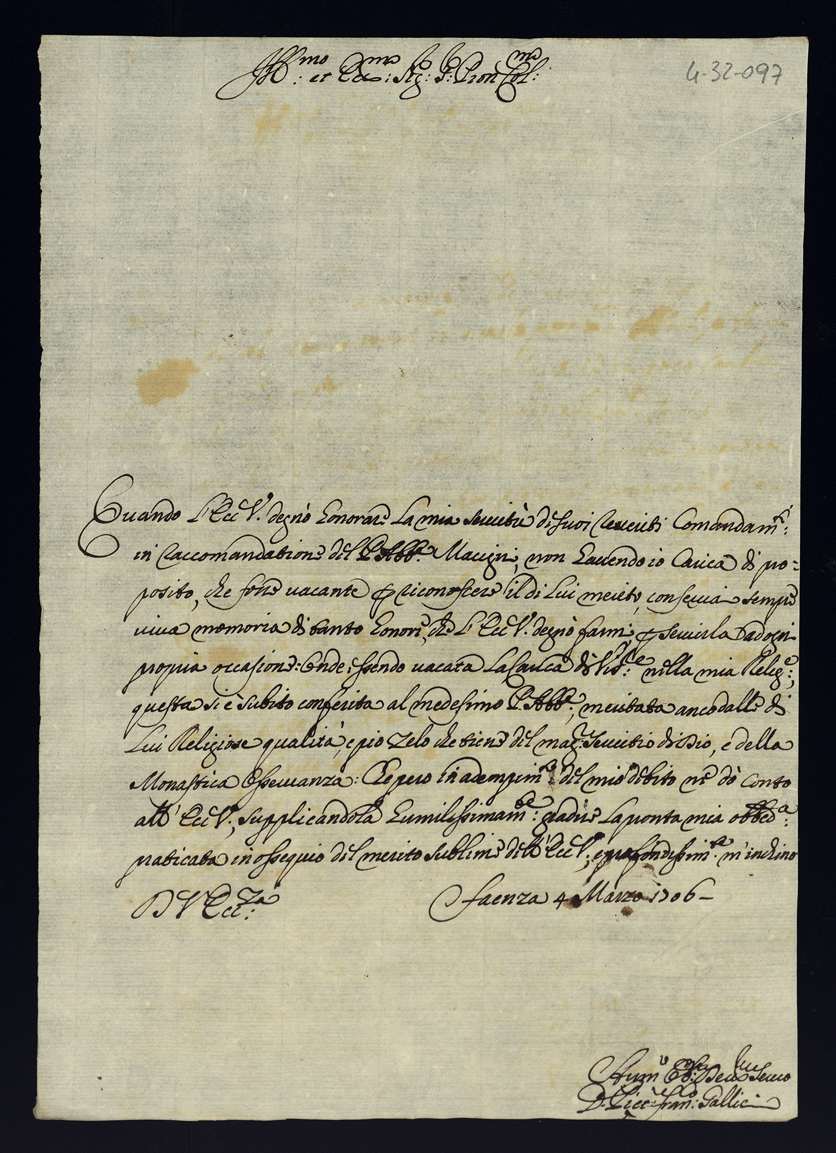 Ill.mo et Ecc.mo Sig.r P.ron Col.mo
4-32-097
Quando l'Ecc. V. degnò honorare la mia servitù de suoi riveriti Comandam.ti
in raccomandatione del P. Abb.e Macigni, non havendo io Carica di pro=
posito, che fosse vacante p riconoscere il di lui merito, conservai sempre
viva memoria di tanto honore, che l'Ecc. V. degnò farmi p servirla ad ogni
propria occasione: Onde essendo vacata la Carica di nella mia Relig.e,
questa si è subito conferita al medesimo P. Abb.e, meritata anco dalle di
Lui Religiose qualità, e pio zelo che tiene del mag.r servitio di Dio, e della
Monastica Osservanza: E però in adempim.to del mio debito ne dò conto
all'Ecc. V., supplicandola humilissimam.te gradire la pronta mia obbed.a
praticata in ossequio del merito sublime dell'Ecc. V., e profondissim.te m'inchino
D V Ecc.za
Faenza 4 Marzo 1706
Hum.o Servo
D.